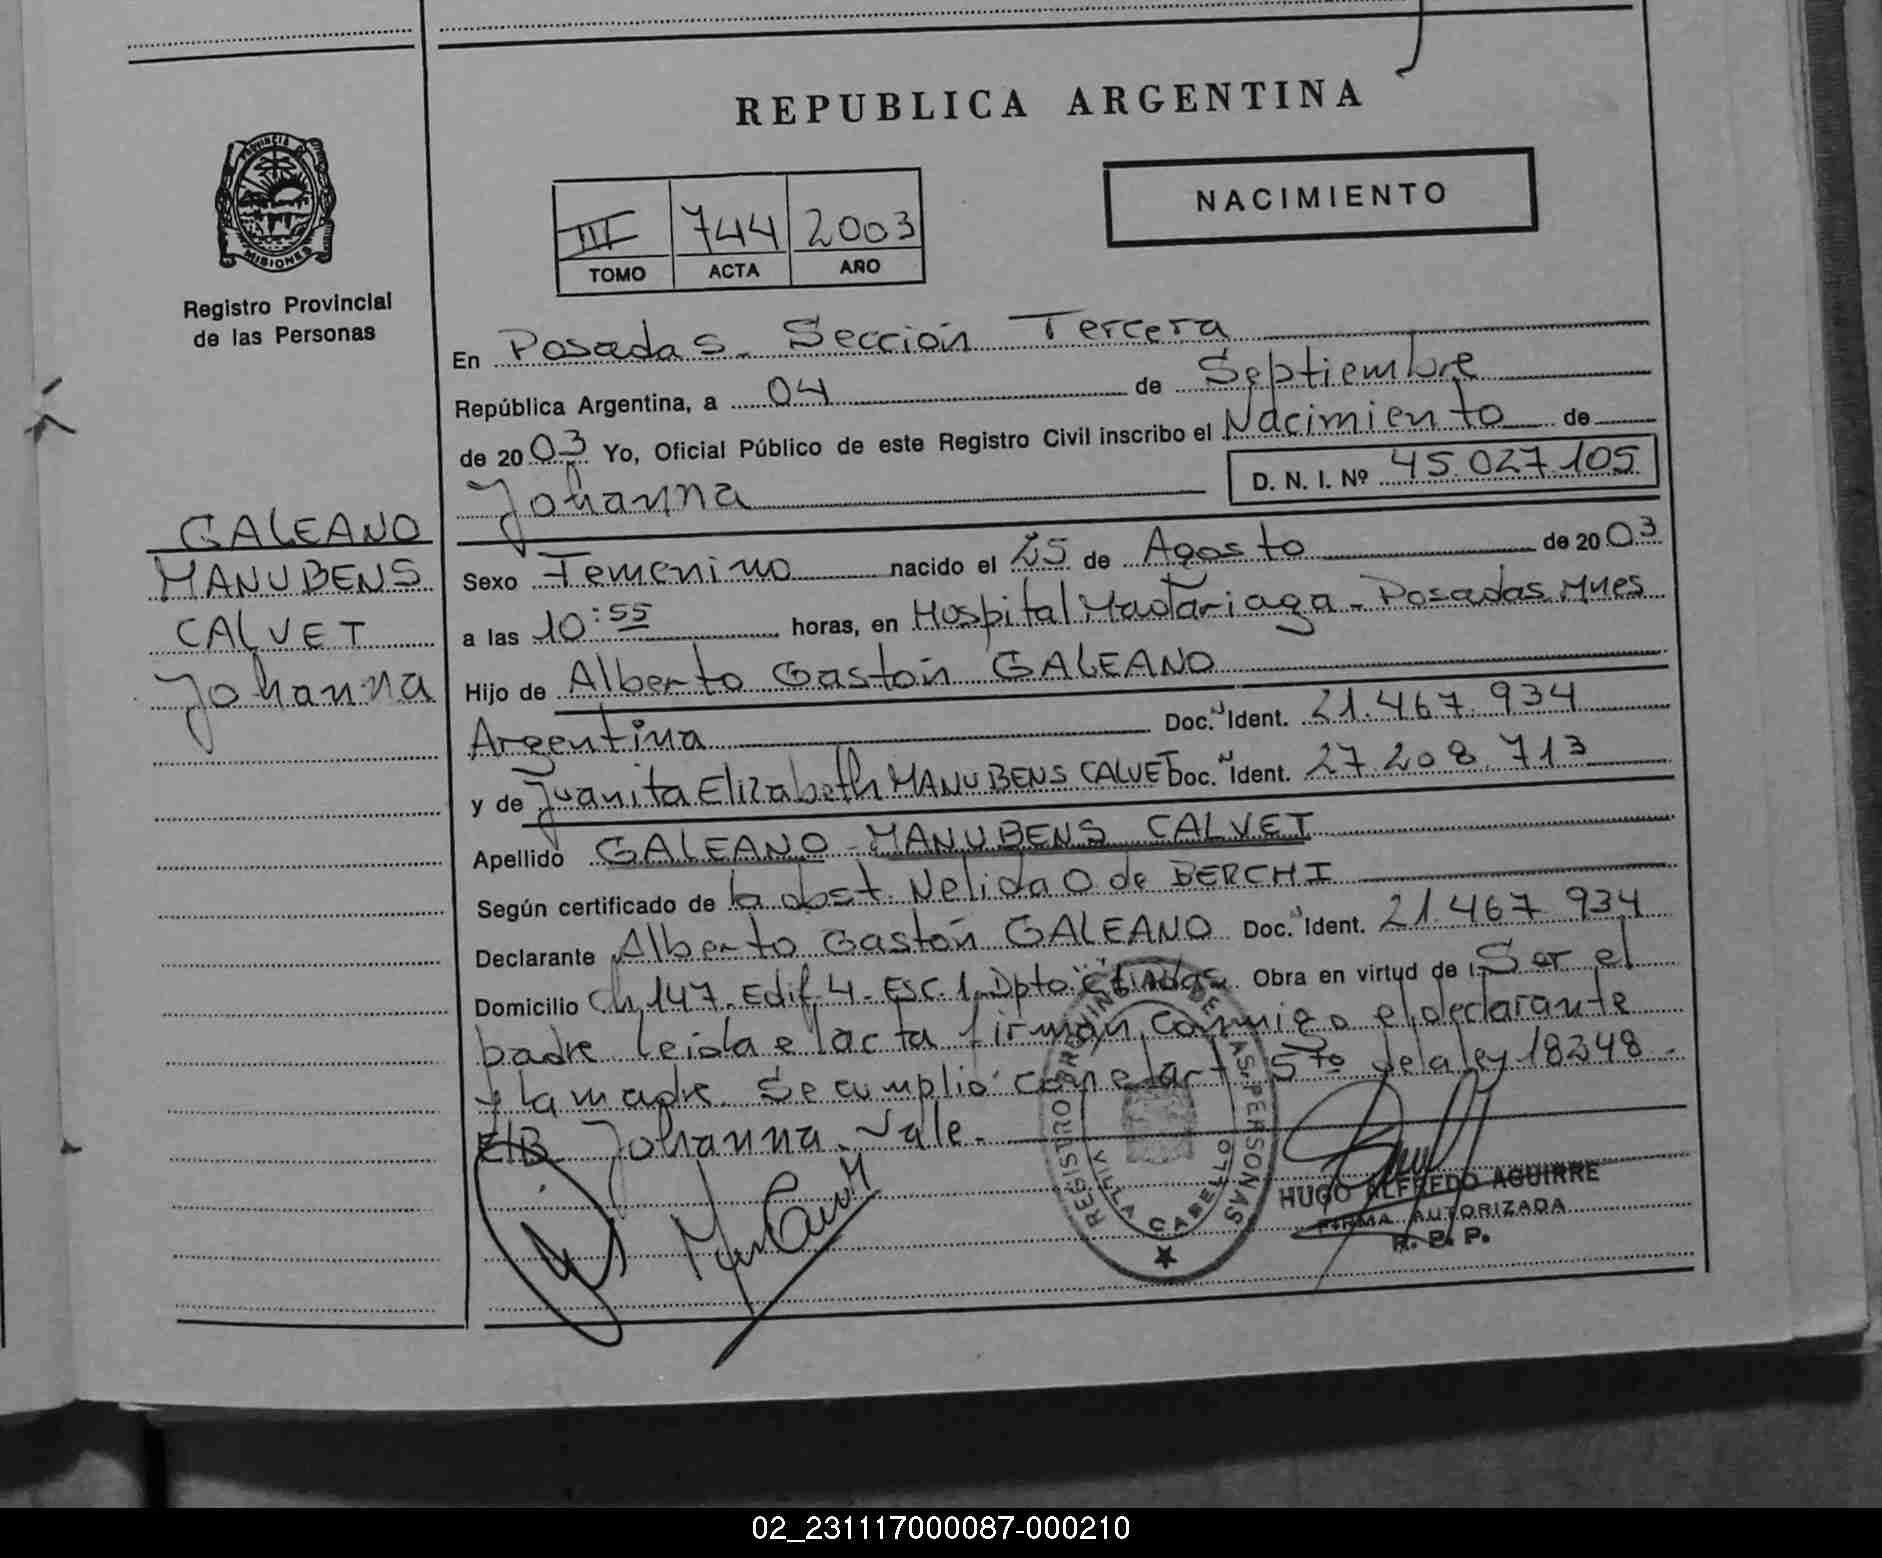 REPUBLICA ARGENTINA
PROVINCIA DE
MISIONES
Registro Provincial
de las Personas
III 744 2003
TOMO ACTA AÑO
NACIMIENTO
En Posadas. Sección Tercera
República Argentina, a 04 de Septiembre
de 2003 Yo, Oficial Público de este Registro Civil inscribo el Nacimiento de
Johanna
D. N. I. Nº 45.027.105
GALEANO
MANUBENS
CALVET
Johanna
Sexo Femenino nacido el 25 de Agosto de 2003
a las 10:55 horas, en Hospital Madariaga - Posadas Mnes
Hijo de Alberto Gastón GALEANO
Argentina Doc. Ident. 21.467.934
y de Juanita Elizabeth MANUBENS CALVET Doc. Ident. 27.208.713
Apellido GALEANO - MANUBENS CALVET
Según certificado de la obst. Nelida O de BERCHI
Declarante Alberto Gastón GALEANO Doc. Ident. 21.467.934
Domicilio Ch 147. Edif. 4. Esc. 1. Dpto Obra en virtud de l. Ser el
padre leida el acta firman conmigo el declarante
y la madre. Se cumplió con el art 5to de la ley 18248.
E/B Johanna. Vale.
REGISTRO PROVINCIAL DE LAS PERSONAS
VILLA CABELLO
HUGO ALFREDO AGUIRRE
FIRMA AUTORIZADA
R. P. P.
02_231117000087-000210